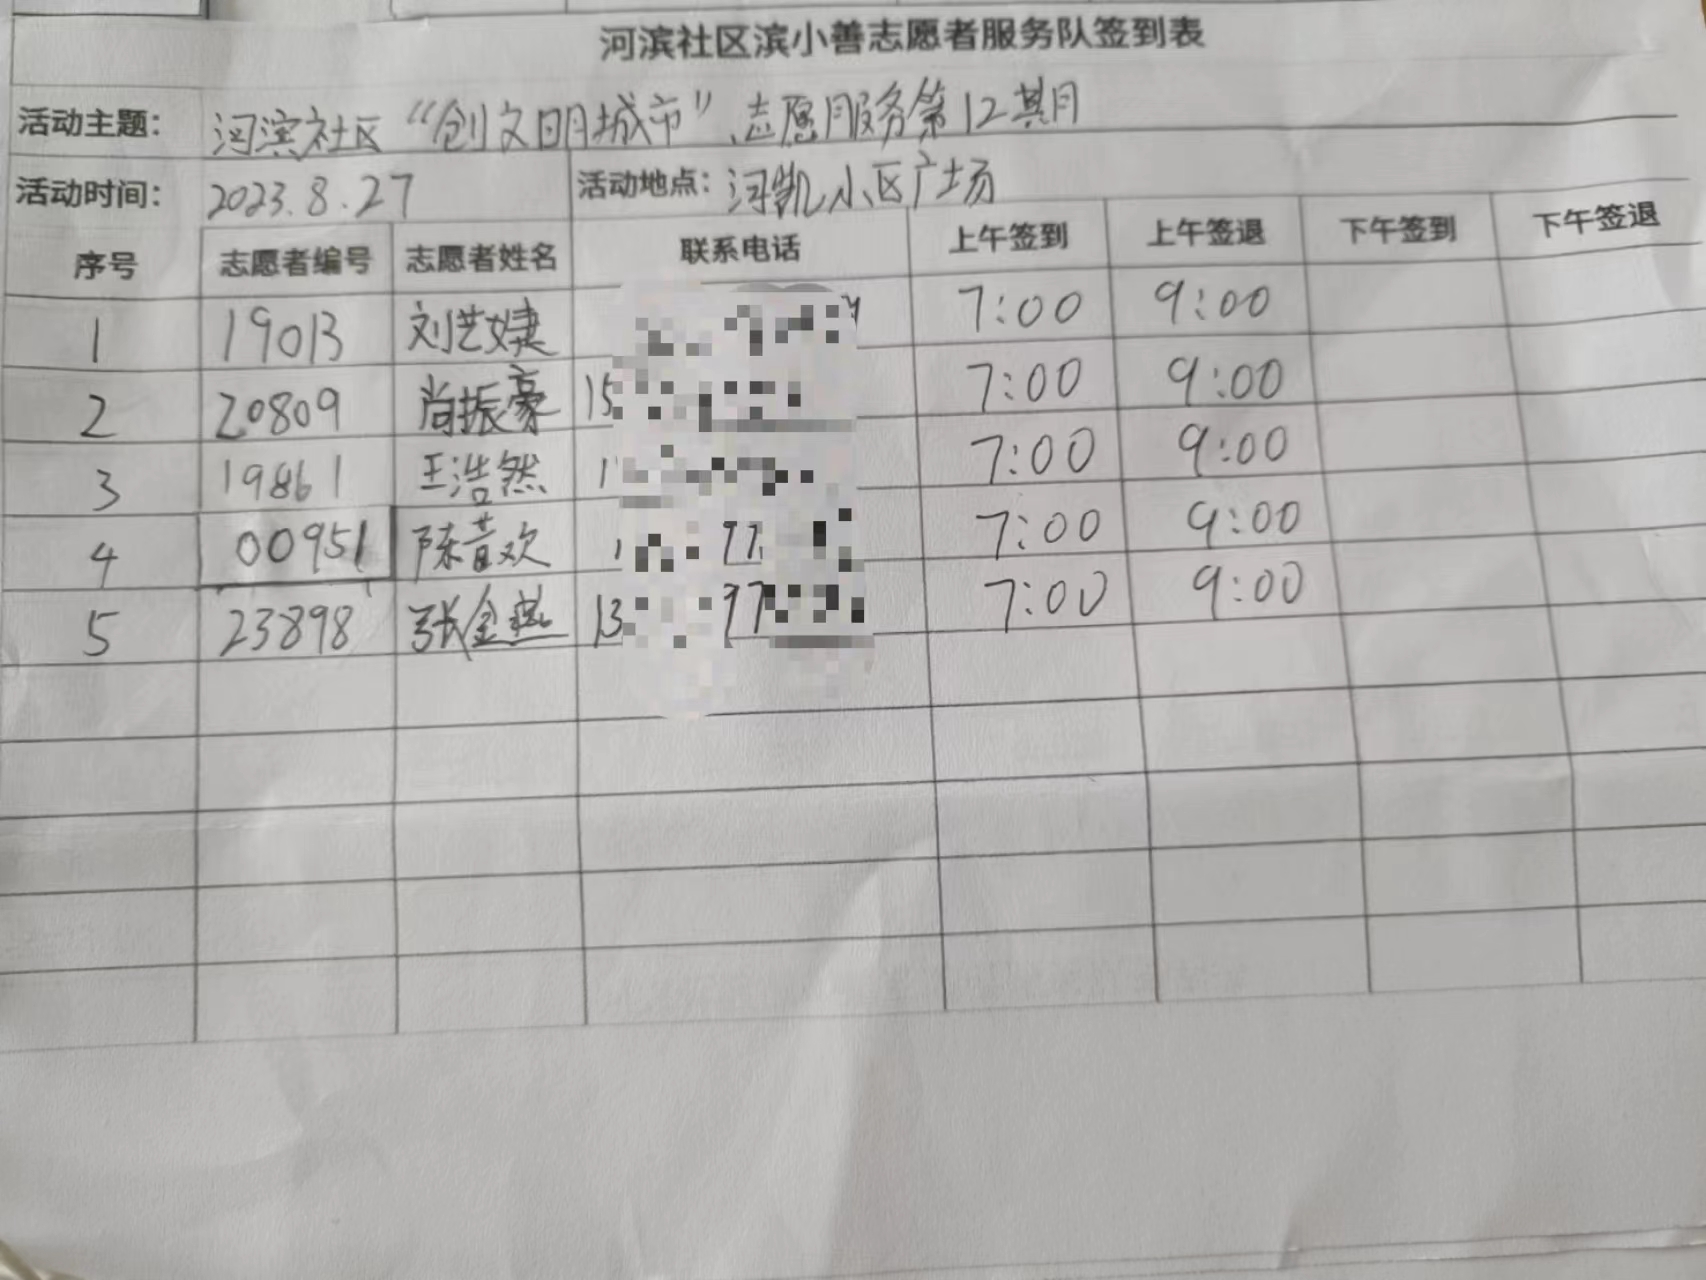 河滨社区滨小善志愿者服务队签到表
活动主题： 河滨社区“创文明城市”志愿服务第12期
活动时间： 2023.8.27 活动地点： 河凯小区广场
序号 志愿者编号 志愿者姓名 联系电话 上午签到 上午签退 下午签到 下午签退
1 19013 刘艺婕 7:00 9:00
2 20809 尚振豪 15 7:00 9:00
3 19861 王浩然 1 7:00 9:00
4 00951 陈昔欢 1 77 7:00 9:00
5 23898 张金燕 13 97 7:00 9:00